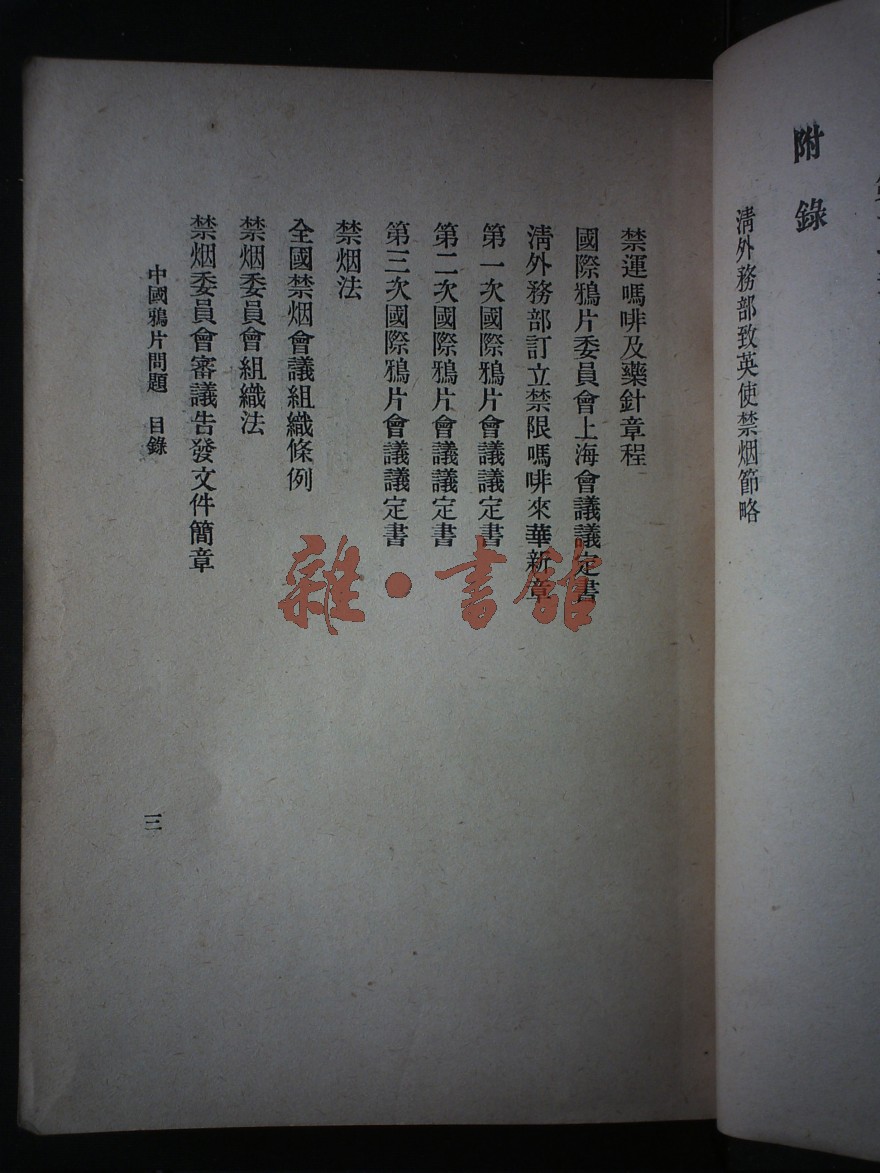 附錄
清外務部致英使禁烟節略
禁運嗎啡及藥針章程
國際鴉片委員會上海會議議定書
清外務部訂立禁限嗎啡來華新章
第一次國際鴉片會議議定書
第二次國際鴉片會議議定書
第三次國際鴉片會議議定書
禁烟法
全國禁烟會議組織條例
禁烟委員會組織法
禁烟委員會審議告發文件簡章
中國鴉片問題 目錄
三
雜·書館